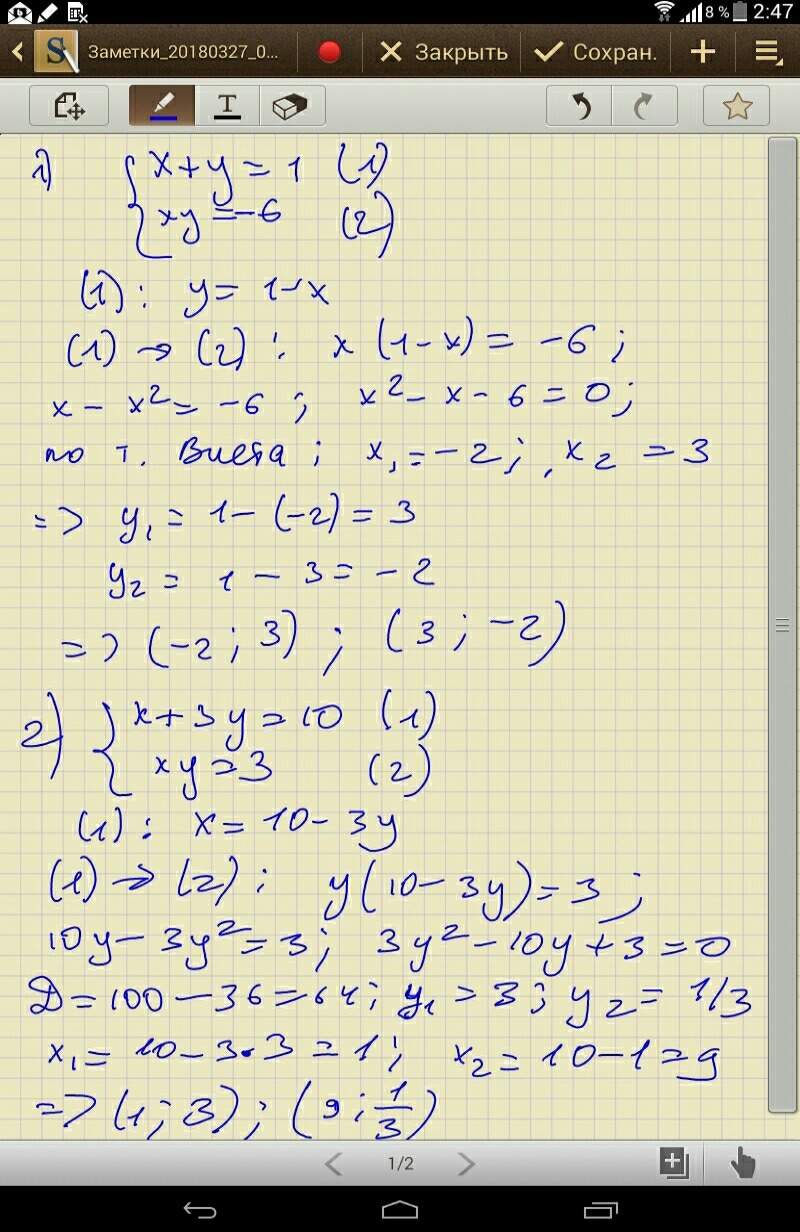 8 % 2:47
Заметки_20180327_0... Закрыть Сохран.
T
1) { x+y=1 (1)
xy=-6 (2)
(1): y= 1-x
(1) → (2): x (1-x)= -6;
x- x²= -6; x²- x- 6=0;
по т. Виета; x₁=-2; x₂ =3
=> y₁= 1-(-2)=3
y₂= 1-3=-2
=> (-2; 3); (3; -2)
2) { x+3y=10 (1)
xy=3 (2)
(1): x= 10-3y
(1) → (2); y(10-3y)=3;
10y-3y²=3; 3y²-10y+3=0
D=100-36=64; y₁=3; y₂= 1/3
x₁= 10-3·3=1; x₂= 10-1=9
=> (1; 3); (9; 1/3)
1/2